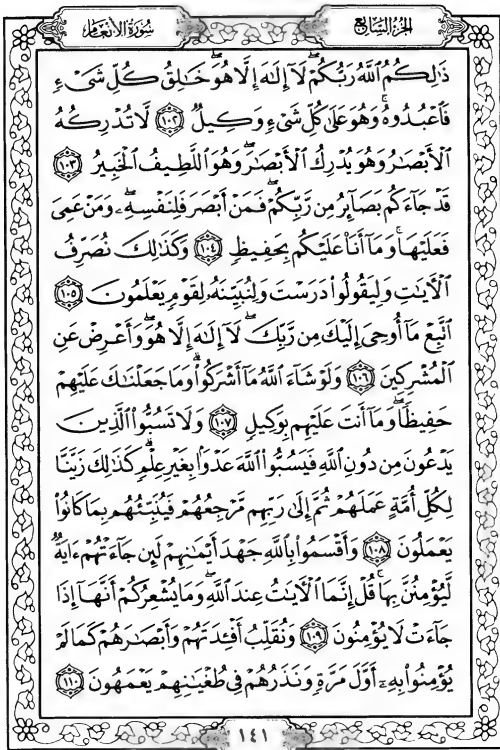 الجزء السابع
سورة الأنعام
ذَٰلِكُمُ ٱللَّهُ رَبُّكُمْ ۖ لَآ إِلَٰهَ إِلَّا هُوَ ۖ خَٰلِقُ كُلِّ شَىْءٍ
فَٱعْبُدُوهُ ۚ وَهُوَ عَلَىٰ كُلِّ شَىْءٍ وَكِيلٌ ١٠٢ لَّا تُدْرِكُهُ
ٱلْأَبْصَٰرُ وَهُوَ يُدْرِكُ ٱلْأَبْصَٰرَ ۖ وَهُوَ ٱللَّطِيفُ ٱلْخَبِيرُ ١٠٣
قَدْ جَآءَكُم بَصَآئِرُ مِن رَّبِّكُمْ ۖ فَمَنْ أَبْصَرَ فَلِنَفْسِهِۦ ۖ وَمَنْ عَمِىَ
فَعَلَيْهَا ۚ وَمَآ أَنَا۠ عَلَيْكُم بِحَفِيظٍ ١٠٤ وَكَذَٰلِكَ نُصَرِّفُ
ٱلْـَٔايَٰتِ وَلِيَقُولُوا۟ دَرَسْتَ وَلِنُبَيِّنَهُۥ لِقَوْمٍ يَعْلَمُونَ ١٠٥
ٱتَّبِعْ مَآ أُوحِىَ إِلَيْكَ مِن رَّبِّكَ ۖ لَآ إِلَٰهَ إِلَّا هُوَ ۖ وَأَعْرِضْ عَنِ
ٱلْمُشْرِكِينَ ١٠٦ وَلَوْ شَآءَ ٱللَّهُ مَآ أَشْرَكُوا۟ ۗ وَمَا جَعَلْنَٰكَ عَلَيْهِمْ
حَفِيظًا ۖ وَمَآ أَنتَ عَلَيْهِم بِوَكِيلٍ ١٠٧ وَلَا تَسُبُّوا۟ ٱلَّذِينَ
يَدْعُونَ مِن دُونِ ٱللَّهِ فَيَسُبُّوا۟ ٱللَّهَ عَدْوًۢا بِغَيْرِ عِلْمٍ ۗ كَذَٰلِكَ زَيَّنَّا
لِكُلِّ أُمَّةٍ عَمَلَهُمْ ثُمَّ إِلَىٰ رَبِّهِم مَّرْجِعُهُمْ فَيُنَبِّئُهُم بِمَا كَانُوا۟
يَعْمَلُونَ ١٠٨ وَأَقْسَمُوا۟ بِٱللَّهِ جَهْدَ أَيْمَٰنِهِمْ لَئِن جَآءَتْهُمْ ءَايَةٌ
لَّيُؤْمِنُنَّ بِهَا ۚ قُلْ إِنَّمَا ٱلْـَٔايَٰتُ عِندَ ٱللَّهِ ۖ وَمَا يُشْعِرُكُمْ أَنَّهَآ إِذَا
جَآءَتْ لَا يُؤْمِنُونَ ١٠٩ وَنُقَلِّبُ أَفْـِٔدَتَهُمْ وَأَبْصَٰرَهُمْ كَمَا لَمْ
يُؤْمِنُوا۟ بِهِۦٓ أَوَّلَ مَرَّةٍ وَنَذَرُهُمْ فِى طُغْيَٰنِهِمْ يَعْمَهُونَ ١١٠
١٤١